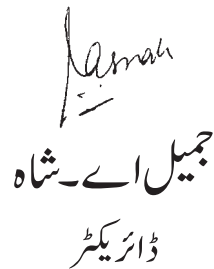 جمیل اے۔ شاہ
ڈائریکٹر